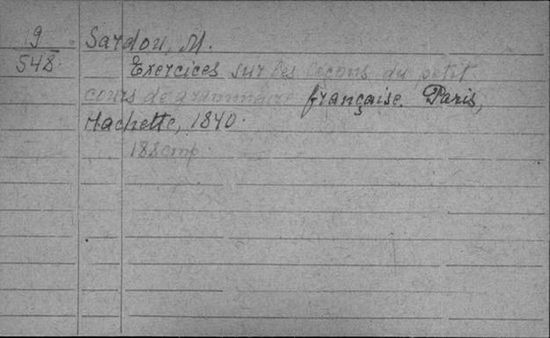 9
548.
Sardou, M.
Exercices sur les leçons du petit
cours de grammaire française. Paris,
Hachette, 1840.
188 стр.